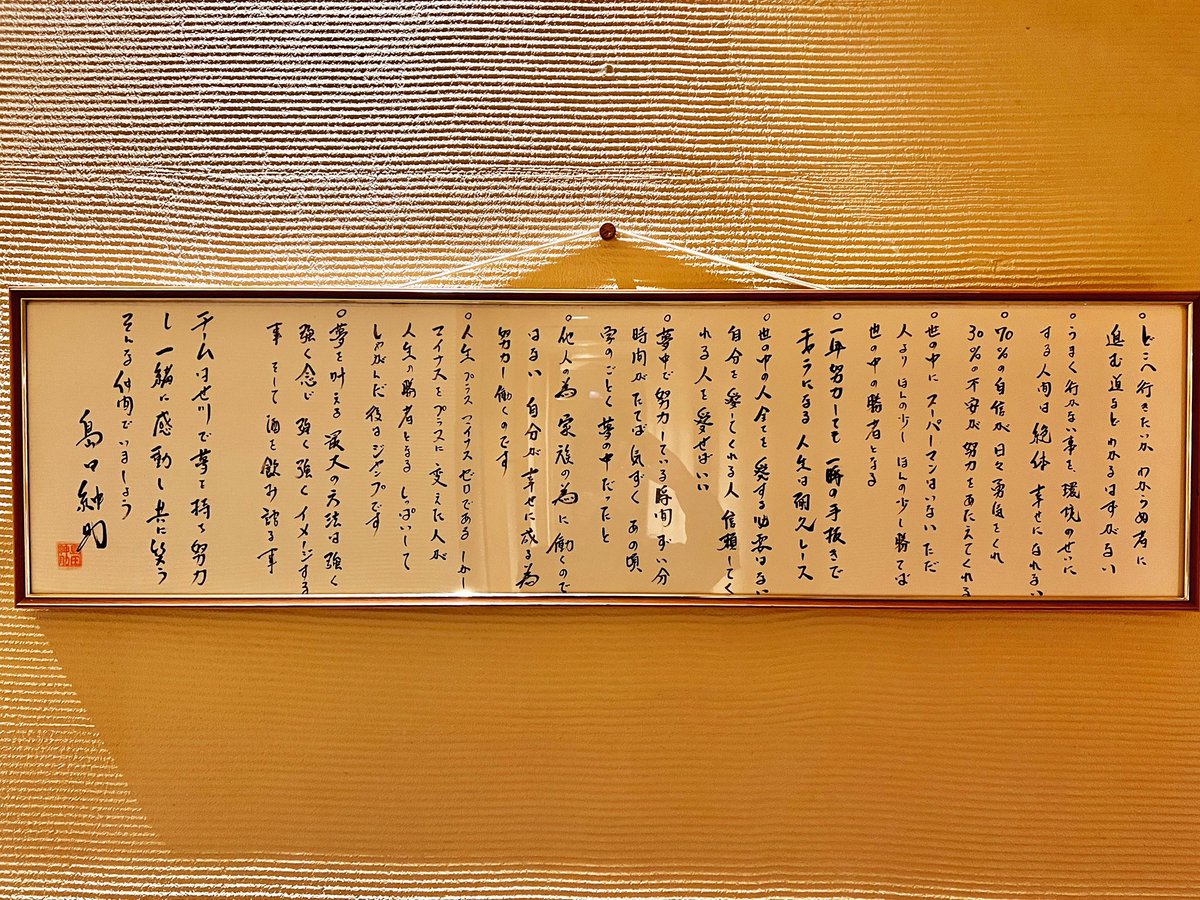 ○どこへ行きたいか わからぬ者に
進む道などわかるはずがない
○うまく行かない事を、環境のせいに
する人間は 絶体 幸せになれない
○70%の自信が 日々勇気をくれ
30%の不安が 努力をあたえてくれる
○世の中に スーパーマンはいない ただ
人より ほんの少し ほんの少し勝てば
世の中の勝者となる
○一年努力しても 一瞬の手抜きで
チャラになる 人生は耐久レース
○世の中の人全てを 愛する必要はない
自分を愛してくれる人 信頼してく
れる人を愛せばいい
○夢中で努力している瞬間 ずい分
時間がたてば気ずく あの頃
雲のごとく 夢の中だったと
○他人の為 家族の為に働くので
はない 自分が幸せに成る為
努力し働くのです
○人生プラス マイナス ゼロである しかし
マイナスをプラスに変えた人が
人生の勝者となる しっぱいして
しゃがんだ後はジャンプです
○夢を叶える最大の方法は強く
強く念じ 強く強くイメージする
事 そして 酒を飲み語る事
チームはせ川で夢を持ち努力
し 一緒に感動し共に笑う
そんな仲間でいましょう